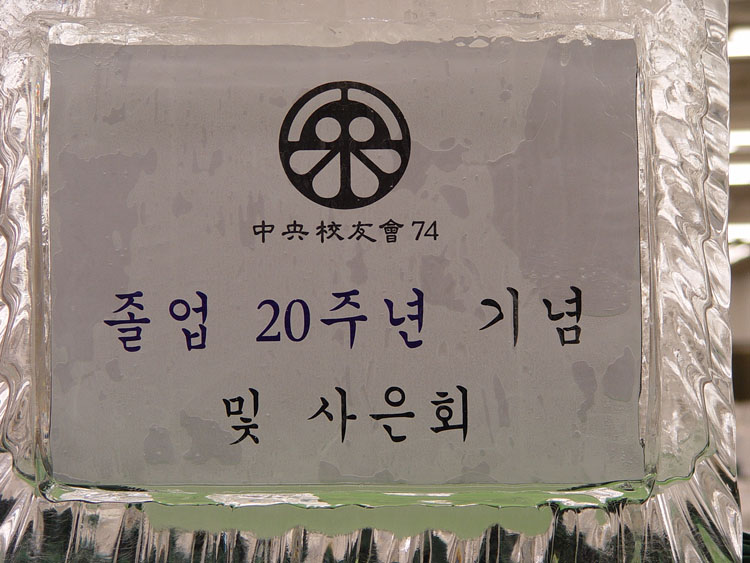 中央校友會 74
졸업 20주년 기념
및 사은회